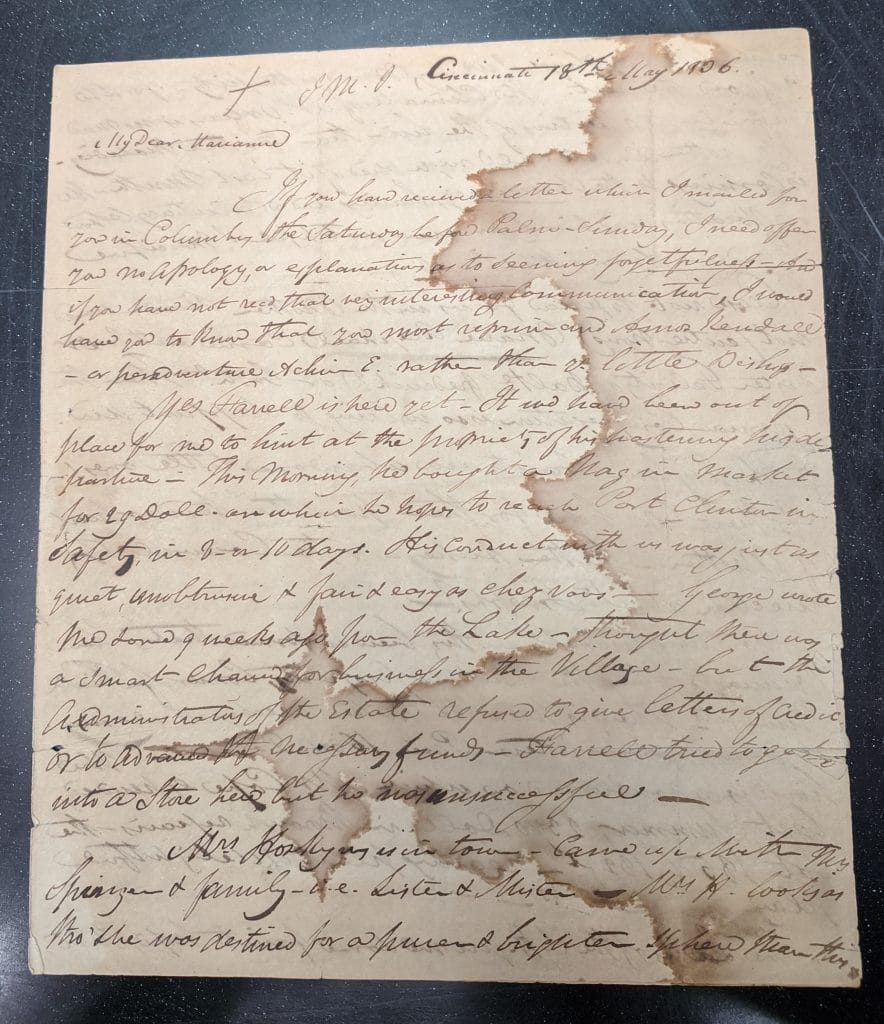 + J. M. J. Cincinnati 18th May 1836.
My Dear Marianne
If you have recieved a letter which I mailed for
you in Columbus the Saturday before Palm-Sunday, I need offer
you no Apology, or explanation as to seeming forgetfulness - And
if you have not recd. that very interesting Communication, I would
have you to know that you must reprimand Amos Kendall
- or peradventure Achim E. rather than yr. little Bishop -
Yes Farrell is here yet - It wd. have been out of
place for me to hint at the propriety of his hastening his de-
parture - This Morning, he bought a Nag in Market
for 29 Doll. on which he hopes to reach Port Clinton in
Safety, in 8 - or 10 days. His conduct with us was just as
quiet, unobtrusive & fair & easy as chez vous - George wrote
me some 9 weeks ago from the Lake - thought there was
a smart Chance for business in the Village - but the
Administrators of the Estate refused to give letters of credit
or to advance necessary funds - Farrell tried to get
into a Store here but he was unsuccessful -
Mrs is in town - Came up with Mrs
& family - i.e. Sister & Mister - Mrs H. looks as
tho' she was destined for a purer & brighter sphere than this